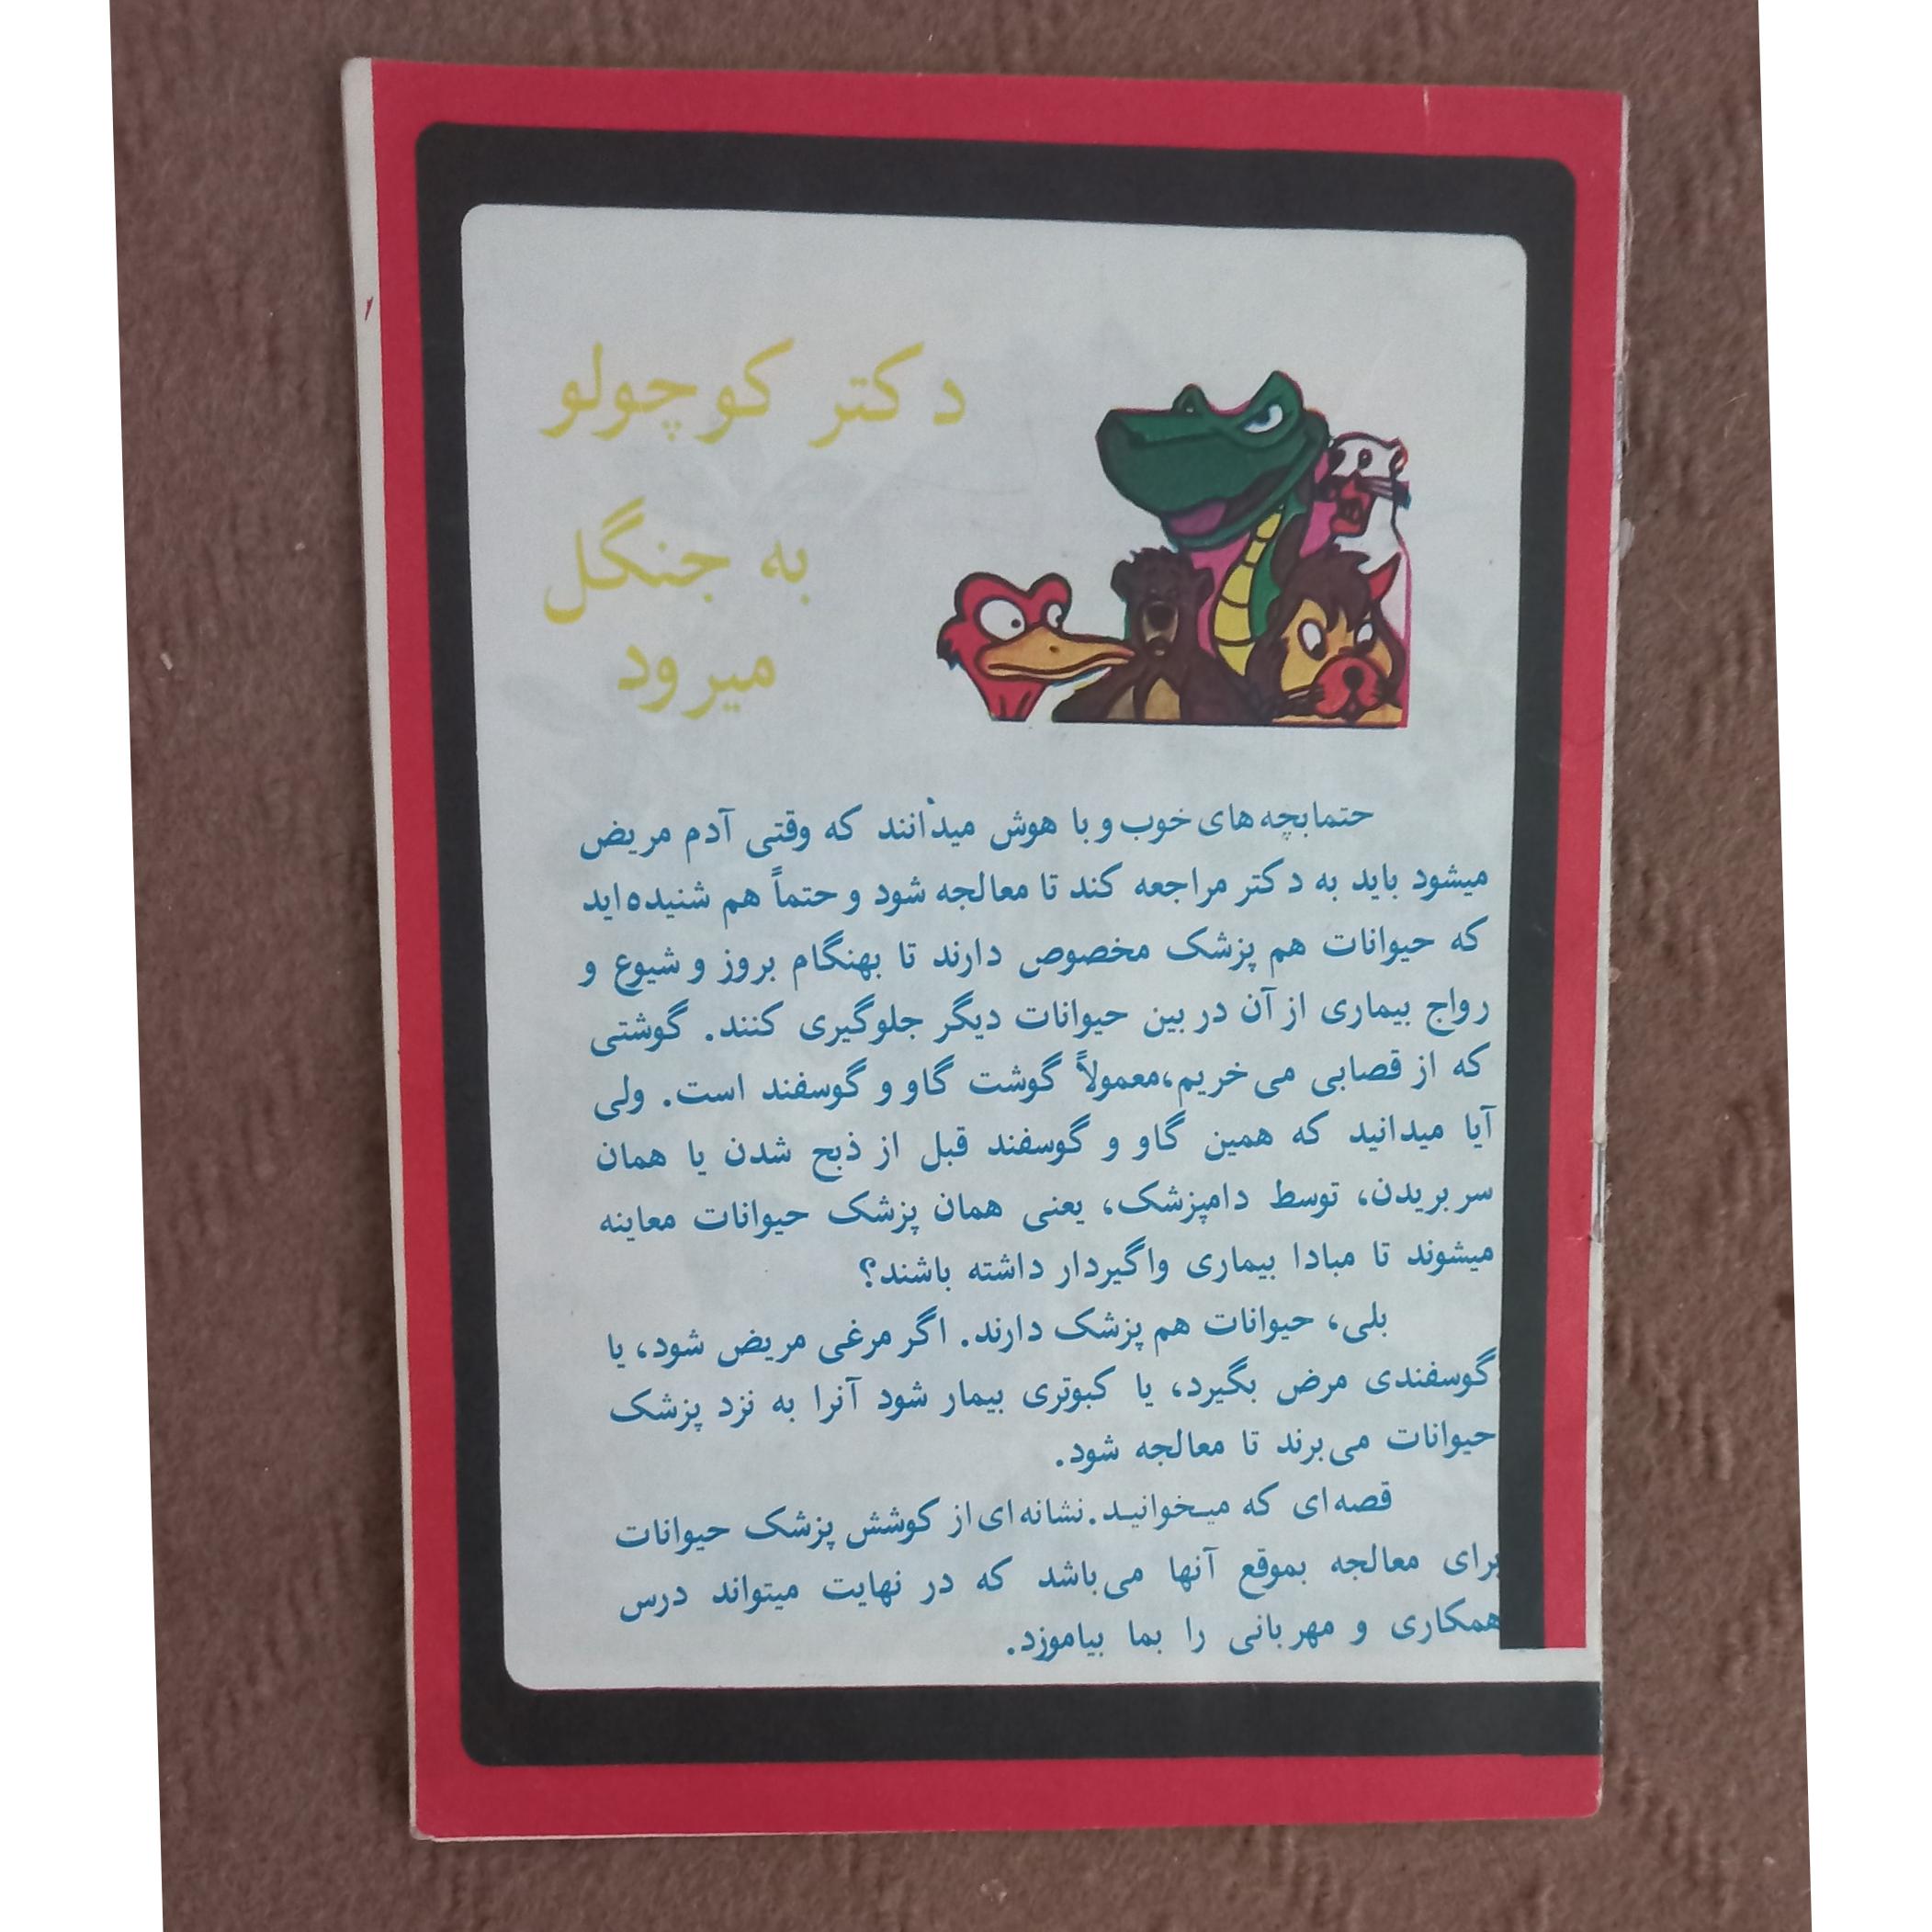 دکتر کوچولو
به جنگل
میرود
حتما بچه های خوب و با هوش میدانند که وقتی آدم مریض
میشود باید به دکتر مراجعه کند تا معالجه شود و حتماً هم شنیده اید
که حیوانات هم پزشک مخصوص دارند تا بهنگام بروز و شیوع و
رواج بیماری از آن در بین حیوانات دیگر جلوگیری کنند. گوشتی
که از قصابی می خریم،معمولاً گوشت گاو و گوسفند است. ولی
آیا میدانید که همین گاو و گوسفند قبل از ذبح شدن یا همان
سر بریدن، توسط دامپزشک، یعنی همان پزشک حیوانات معاینه
میشوند تا مبادا بیماری واگیردار داشته باشند؟
بلی، حیوانات هم پزشک دارند. اگر مرغی مریض شود، یا
گوسفندی مرض بگیرد، یا کبوتری بیمار شود آنرا به نزد پزشک
حیوانات می برند تا معالجه شود.
قصه ای که میـخوانیـد.نشانه ای از کوشش پزشک حیوانات
برای معالجه بموقع آنها می باشد که در نهایت میتواند درس
همکاری و مهربانی را بما بیاموزد.